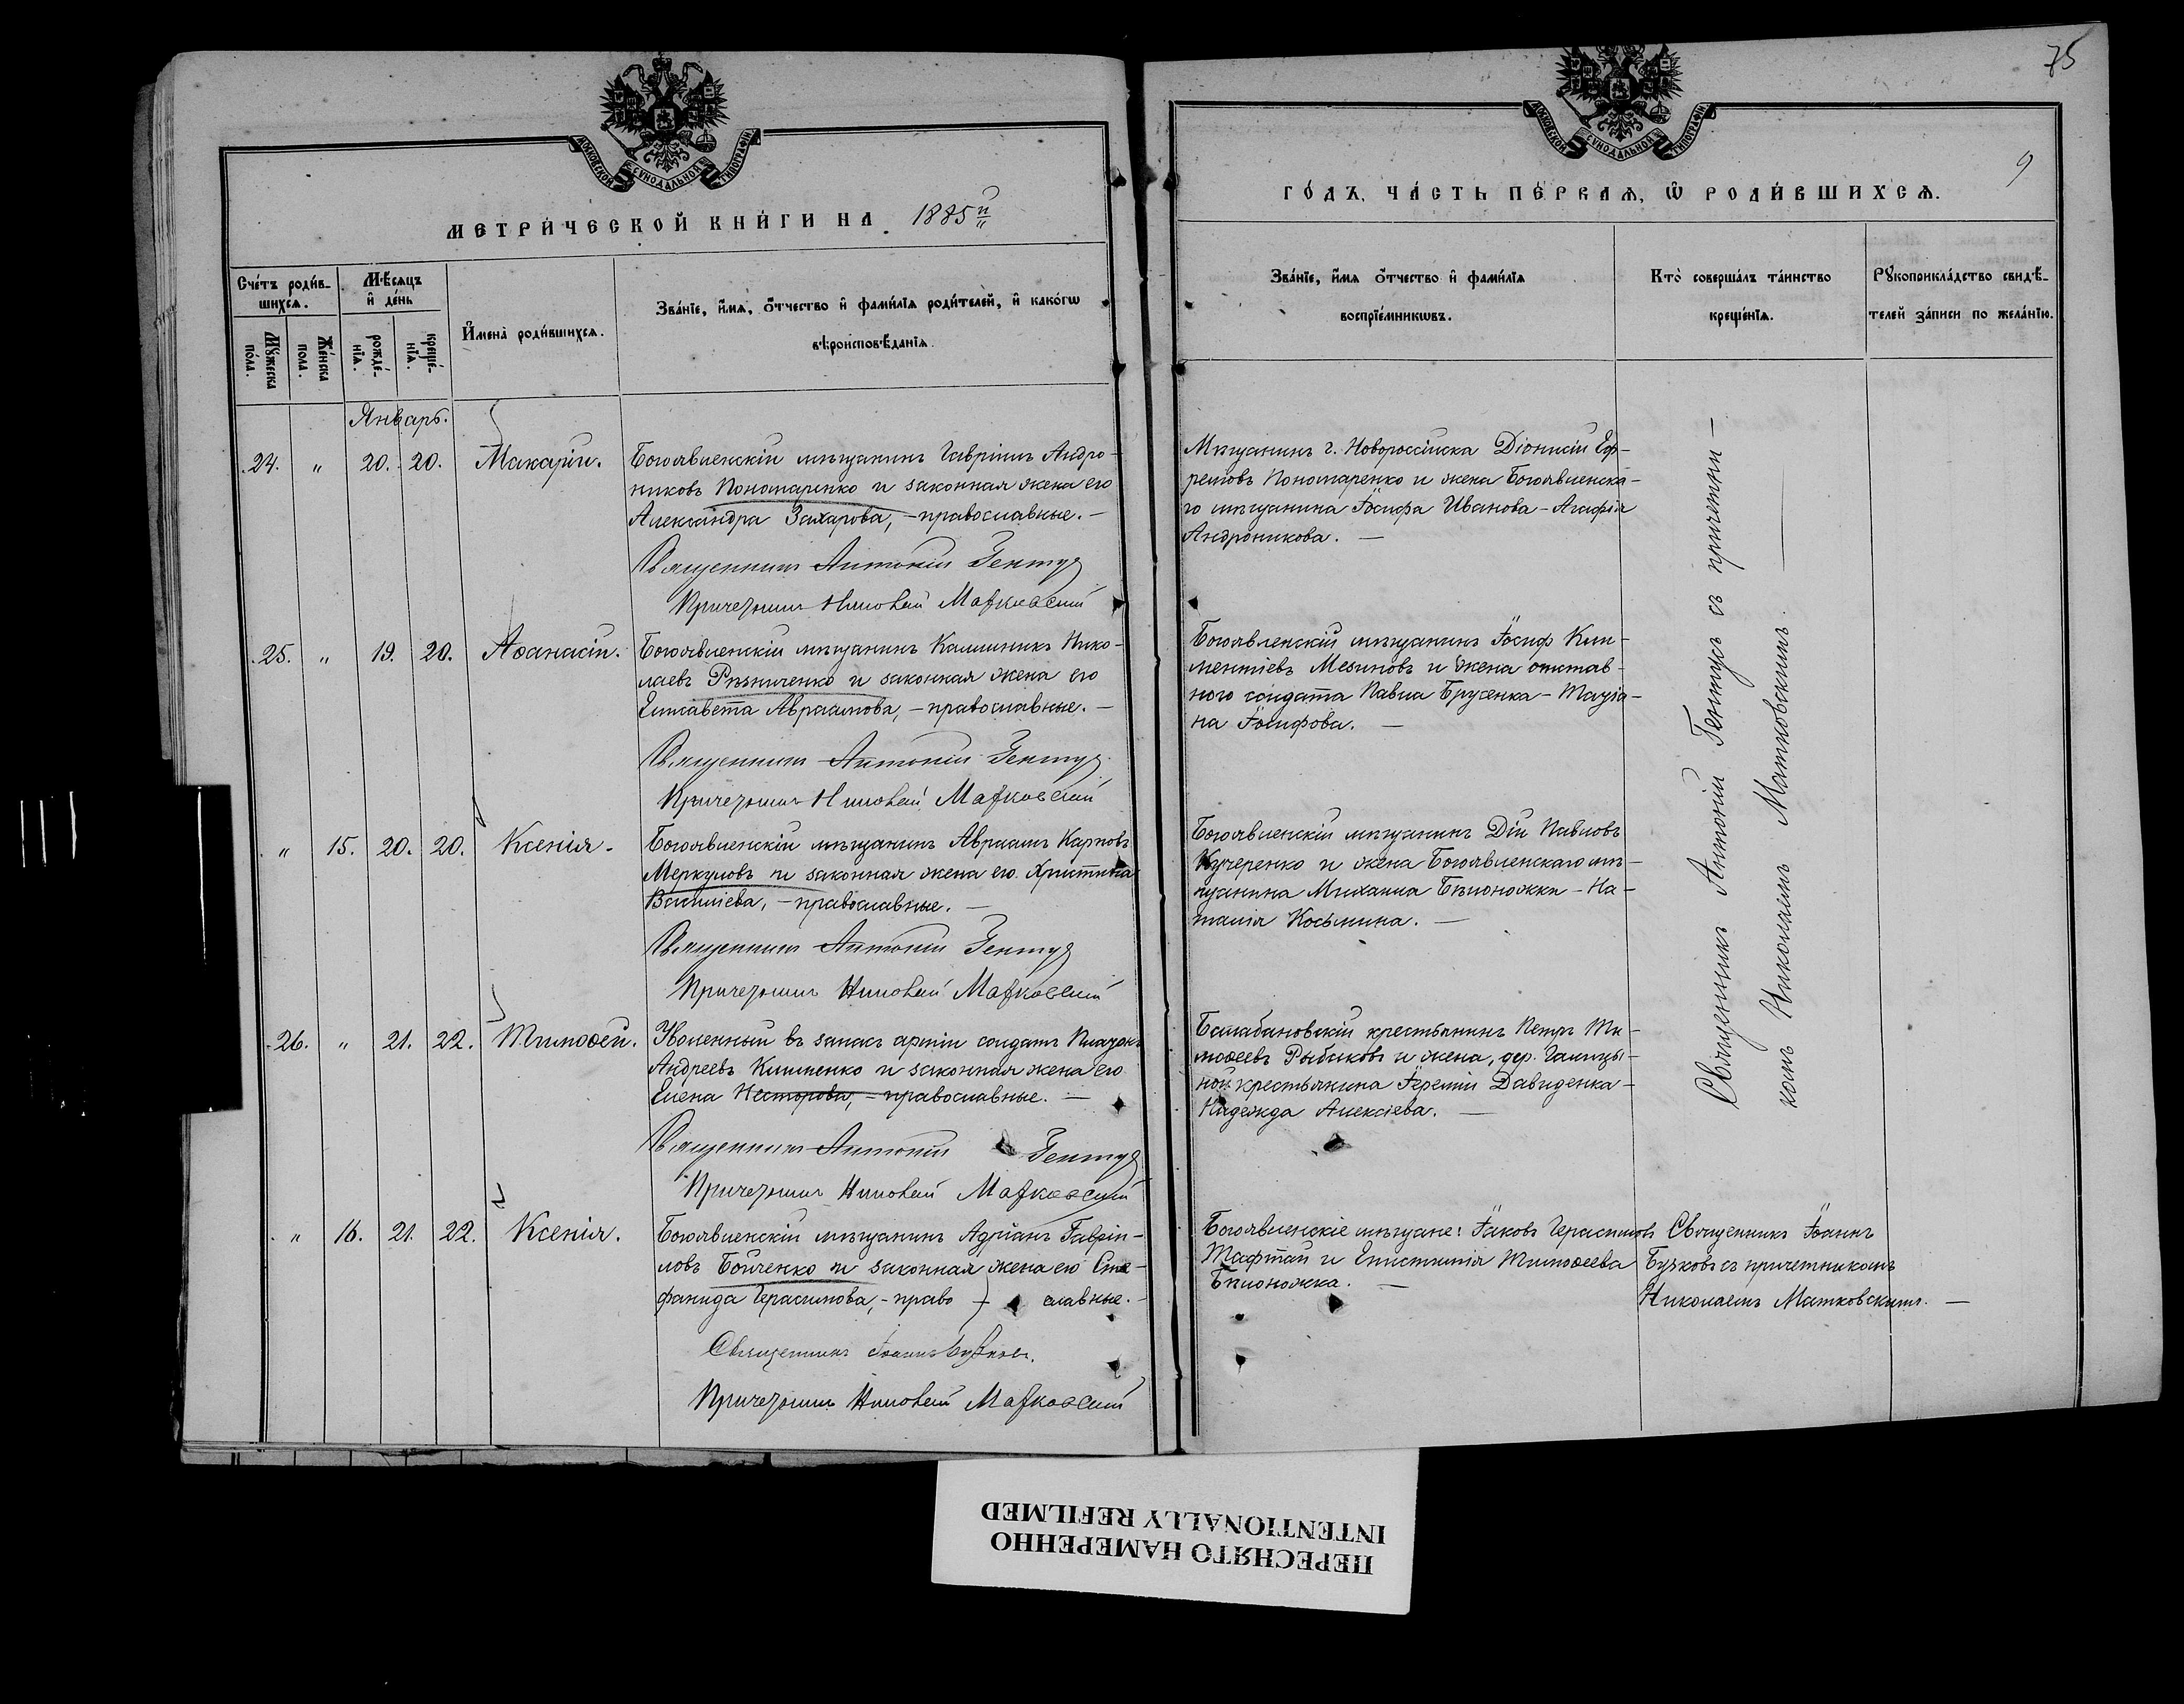 МОСКОВСКОЙ СѴНОДАЛЬНОЙ ТИПОГРАФІИ
МЕТРИ́ЧЕСКОЙ КНИ́ГИ НА 1885й
Сче́тъ роди́в-
шихсѧ.
Мѣ́сѧцъ
и҆ де́нь
Мꙋ́жеска
по́ла.
Же́нска
пола.
рожде́-
нїѧ.
креще́-
нїѧ.
И҆мена̀ роди́вшихсѧ.
Зва́нїе, и҆́мѧ, ѻ҆́тчество и҆ фами́лїѧ роди́телей, и҆ како́гѡ
вѣроисповѣ́данїѧ.
Январь.
24. " 20. 20. Макарій.
Богоявленскій мѣщанинъ Гавріилъ Андро-
никовъ Пономаренко и законная жена его
Александра Захарова, - православные. -
Священникъ Антоній Гентуз
Причетникъ Николай Матковский
25. " 19. 20. Аѳанасій.
Богоявленскій мѣщанинъ Каллиникъ Нико-
лаевъ Рѣзниченко и законная жена его
Елисавета Авраамова, - православные. -
Священникъ Антоній Гентуз
Причетникъ Николай Матковский
" 15. 20. 20. Ксенія.
Богоявленскій мѣщанинъ Авраамъ Карповъ
Меркуловъ и законная жена его Христина
Василіева, - православные. -
Священникъ Антоній Гентуз
Причетникъ Николай Матковский
26. " 21. 22. Тимоѳей.
Уволенный въ запасъ арміи солдатъ Платонъ
Андреевъ Клименко и законная жена его
Елена Несторова, - православные. -
Священникъ Антоній Гентуз
Причетникъ Николай Матковский
" 16. 21. 22. Ксенія.
Богоявленскій мѣщанинъ Адріанъ Гаврii-
ловъ Бойченко и законная жена его Сте-
фанида Герасимова, - право славные. -
Священникъ Іоаннъ Бучковъ.
Причетникъ Николай Матковский
75
9
МОСКОВСКОЙ СѴНОДАЛЬНОЙ ТИПОГРАФІИ
ГО́ДЪ, ЧА́СТЬ ПЕ́РВАѦ, Ѡ҆ РОДИ́ВШИХСѦ.
Зва́нїе, и҆́мѧ ѻ҆́тчество и҆ фами́лїѧ
воспрїе́мникѡвъ.
Кто̀ соверша́лъ та́инство
креще́нїѧ.
Рꙋкоприкла́дство свидѣ́-
телей за́писи по жела́нїю.
Мѣщанинъ г. Новороссійска Діонисій Еф-
ремовъ Пономаренко и жена Богоявленска-
го мѣщанина Іосифа Иванова - Агафія
Андроникова. -
Богоявленскій мѣщанинъ Іосиф Кли-
ментіевъ Мезиновъ и жена отстав-
ного солдата Павла Брусенка - Татіа-
на Іосифова. -
Богоявленскій мѣщанинъ Дій Павловъ
Кучеренко и жена Богоявленскаго мѣ-
щанина Михаила Бѣлоножки - На-
талія Косьмина. -
Балабановскій крестьянинъ Петръ Ти-
моѳеевъ Рыбаковъ и жена, дер. Галицы-
ной крестьянина Іереміи Давиденка -
Надежда Алексіева. -
Священникъ Антоній Гентуз съ причетни-
комъ Николаемъ Матковскимъ.
Богоявленскіе мѣщане: Іаковъ Герасимовъ
Тафтай и Епистимія Тимоѳеева
Бѣлоножка. -
Священникъ Іоаннъ
Бучковъ съ причетникомъ
Николаемъ Матковскимъ. -
ПЕРЕСНЯТО НАМЕРЕННО
INTENTIONALLY REFILMED